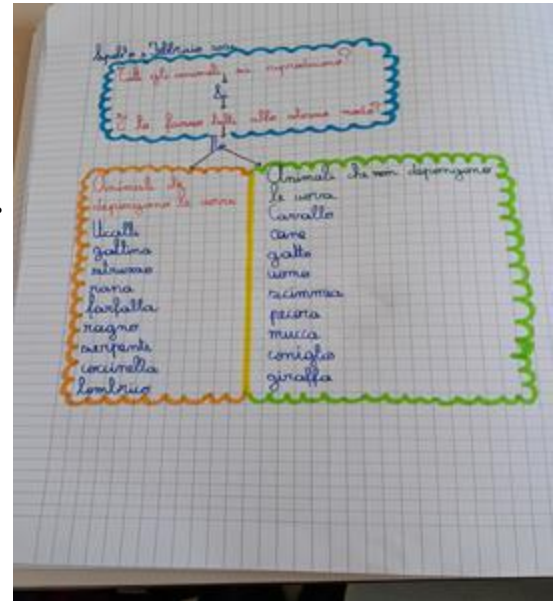 Febbraio
Tutti gli animali si riproducono?
Sì
E lo fanno tutti allo stesso modo?
No
Animali che
depongono le uova
Uccelli
gallina
struzzo
rana
farfalla
ragno
serpente
coccinella
lombrico
Animali che non depongono
le uova
Cavallo
cane
gatto
uomo
scimmia
pecora
mucca
coniglio
giraffa